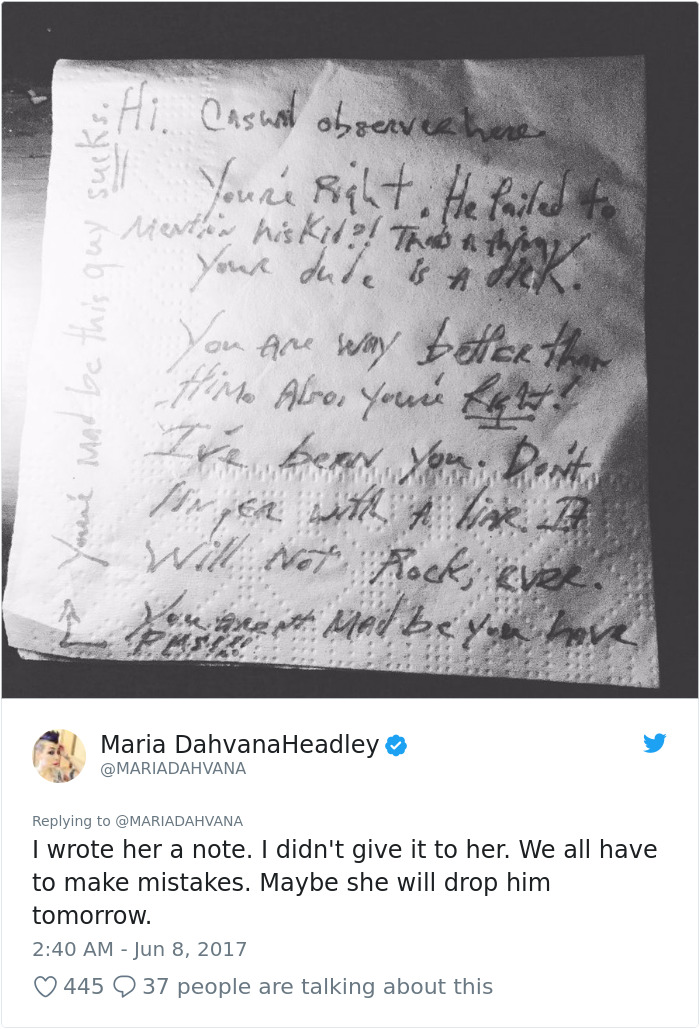 Hi. Casual observer here.
You're Right. He failed to
Mention his Kid?! That's a thing!
Your dude is A dick.
You are way better than
Him. Also, you're Right!
I've been you. Don't
linger with A liar. It
Will Not Rock, ever.
You aren't Mad bc you have
PMS!!!!
You're Mad bc this guy sucks.
Maria DahvanaHeadley
@MARIADAHVANA
Replying to @MARIADAHVANA
I wrote her a note. I didn't give it to her. We all have
to make mistakes. Maybe she will drop him
tomorrow.
2:40 AM - Jun 8, 2017
445 37 people are talking about this